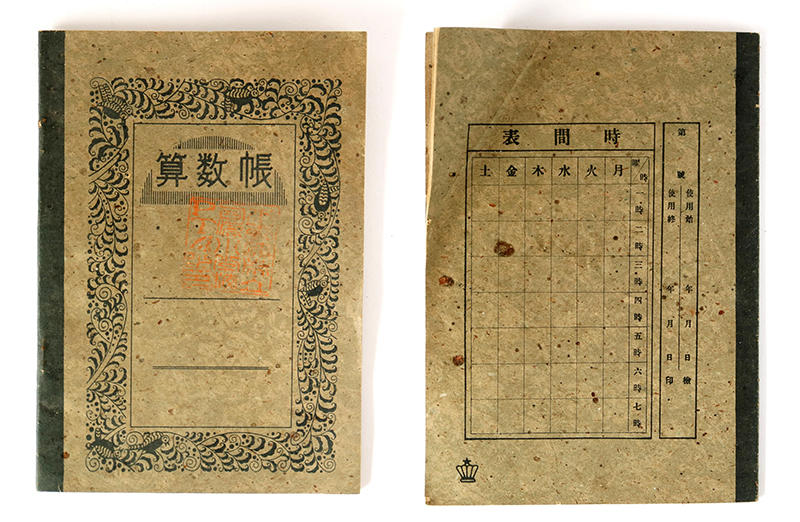 算数帳
時間表
曜時
月火水木金土
一時
二時
三時
四時
五時
六時
七時
第 號
使用始 年 月 日 檢
使用終 年 月 日 印